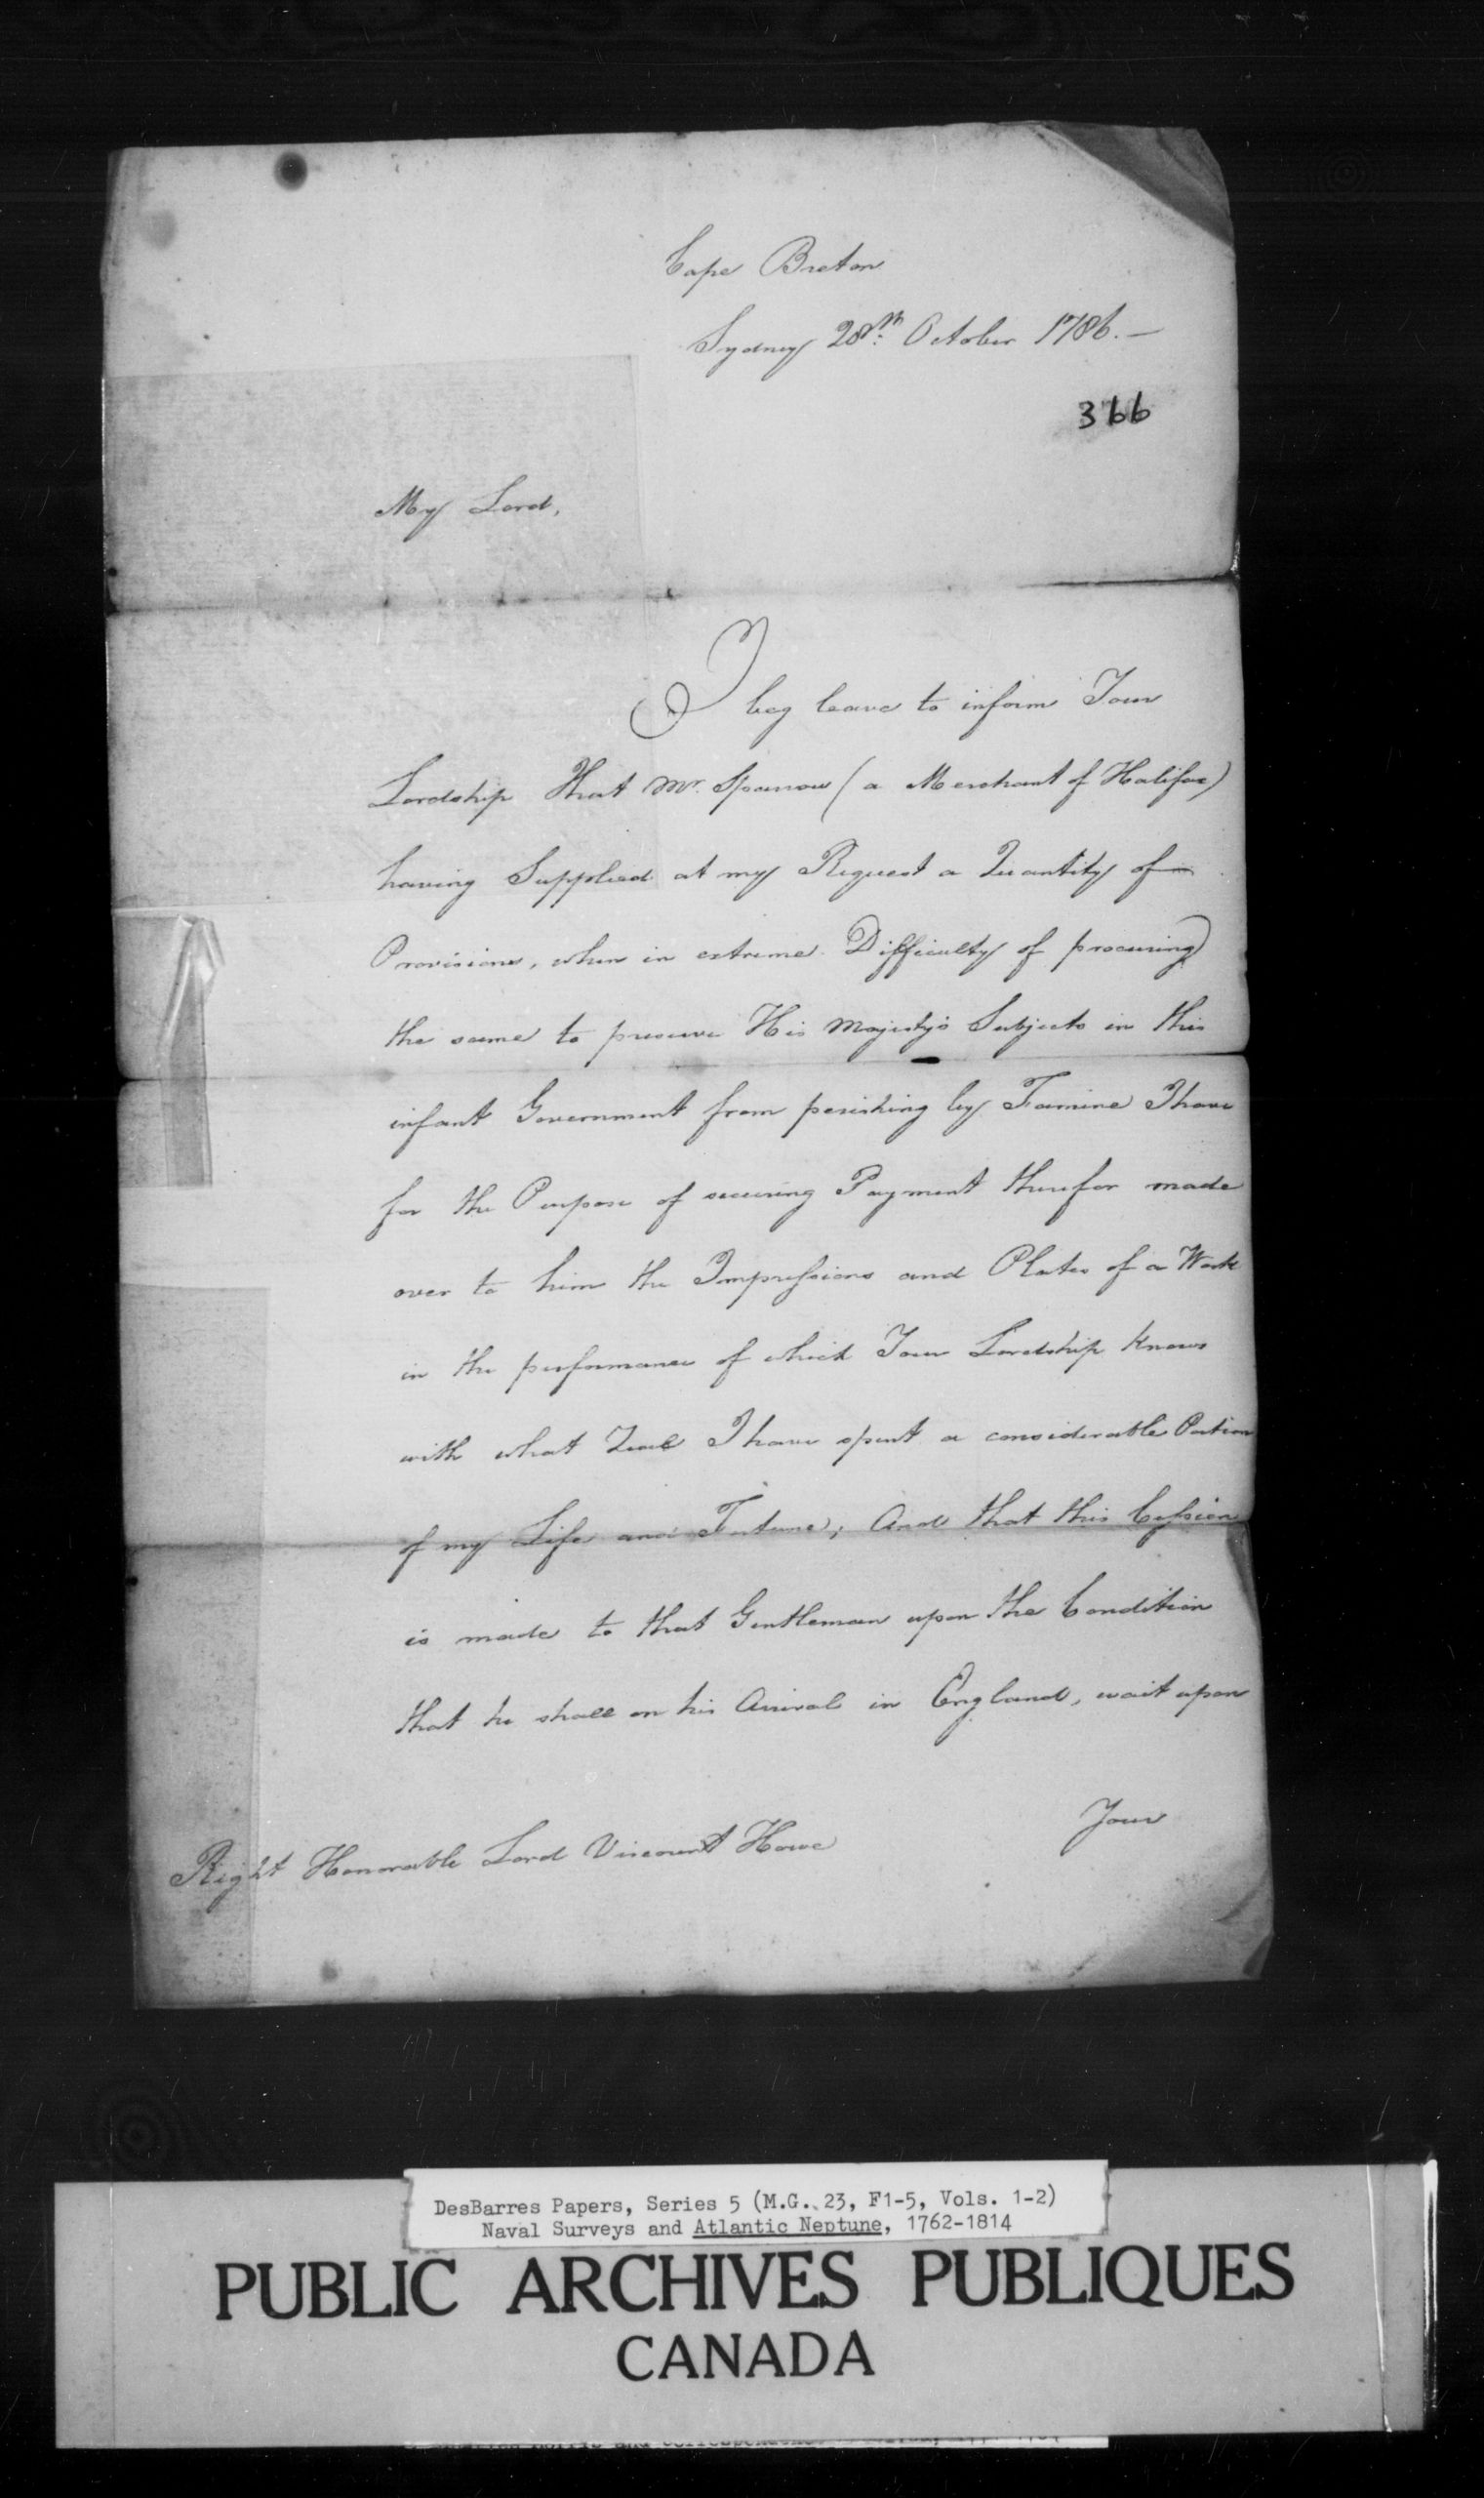 Cape Breton
Sydney 28th: October 1786.—
366
My Lord,
I beg leave to inform Your
Lordship that Mr. Sparrow (a Merchant of Halifax)
having Supplied at my Request a Quantity of
Provisions, when in extreme Difficulty of procuring
the same to preserve His Majesty's Subjects in this
infant Government from perishing by Famine I have
for the Purpose of securing Payment therefor made
over to him the Impressions and Plates of a Work
in the performance of which Your Lordship knows
with what Zeal I have spent a considerable Portion
of my Life and Fortune; And that this Cession
is made to that Gentleman upon the Condition
that he shall on his Arrival in England, wait upon
Your
Right Honorable Lord Viscount Howe
DesBarres Papers, Series 5 (M.G. 23, F1-5, Vols. 1-2)
Naval Surveys and Atlantic Neptune, 1762-1814
PUBLIC ARCHIVES PUBLIQUES
CANADA